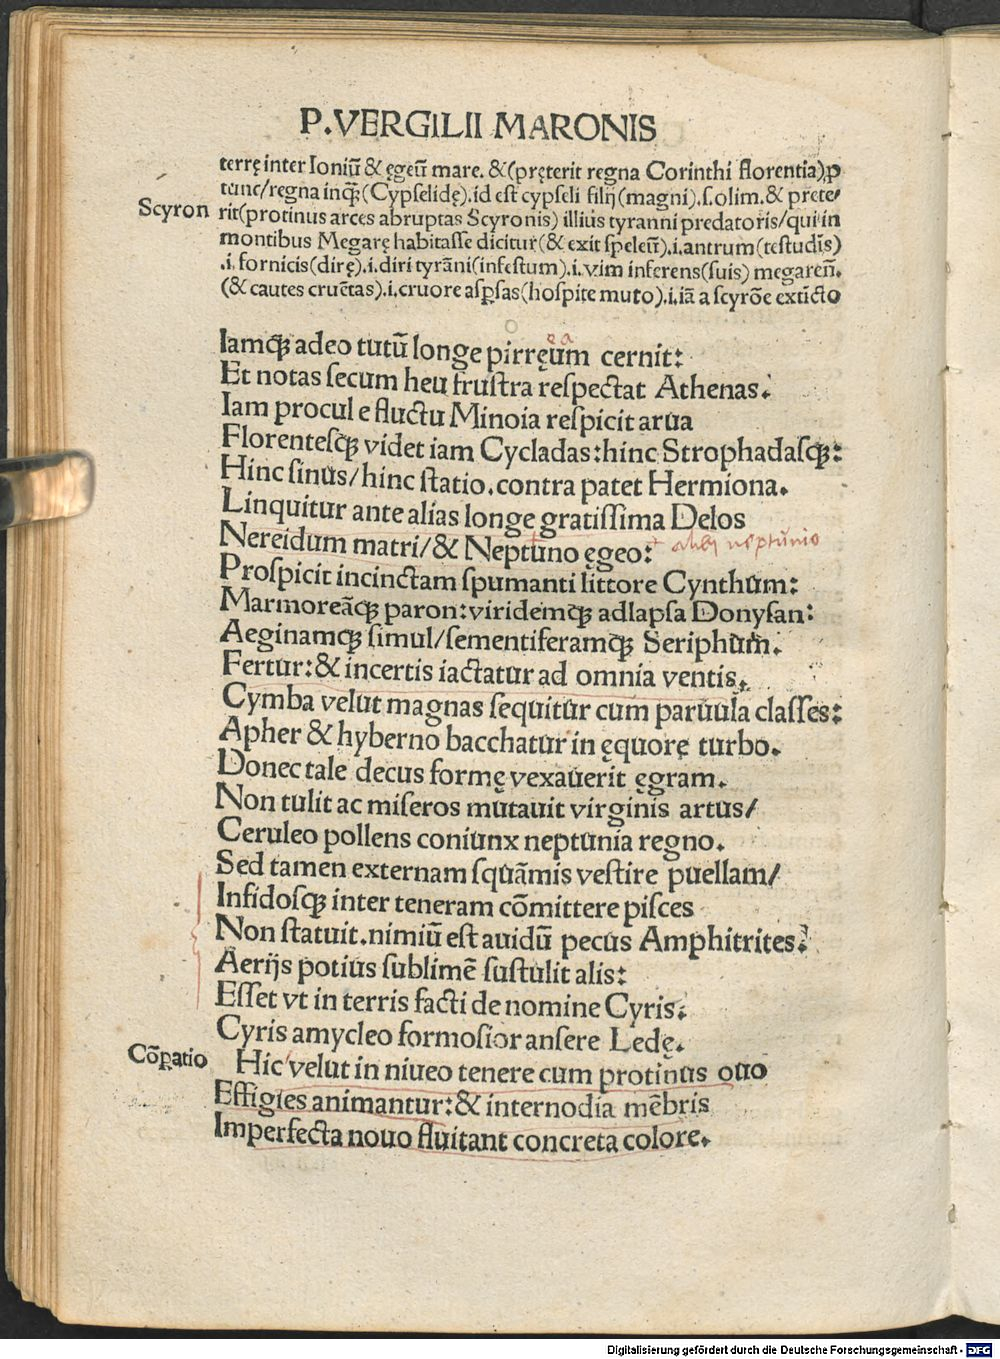 P.VERGILII MARONIS
terrę inter Ioniũ & ęgeũ mare. &(pręterit regna Corinthi florentia)ꝑ
tunc/regna inq̃(Cypselidę).id est cypseli filij(magni).s.olim.& prete/
Scyron
rit(protinus arces abruptas Scyronis) illius tyranni predatoris/qui in
montibus Megarę habitasse dicitur(& exit speleũ).i.antrum(testudĩs)
.i.fornicis(dirę).i.diri tyrãni(infestum).i.vim inferens(suis) megareñ.
(& cautes cruẽtas).i.cruore asꝑsas(hospite muto).i.iã a scyrõe extĩcto
Iamqꝫ adeo tutũ longe pirręum cernit:
ea
Et notas secum heu frustra respectat Athenas.
Iam procul e fluctu Minoia respicit arua
Florentesqꝫ videt iam Cycladas:hinc Strophadasqꝫ:
Hinc sinus/hinc statio.contra patet Hermiona.
Linquitur ante alias longe gratissima Delos
Nereidum matri/& Neptuno ęgeo:
neptunio
Prospicit incinctam spumanti littore Cynthum:
Marmoreãqꝫ paron:viridemqꝫ adlapsa Donysan:
Aeginamqꝫ simul/sementiferamqꝫ Seriphum.
Fertur:& incertis iactatur ad omnia ventis.
Cymba velut magnas sequitur cum paruula classes:
Apher & hyberno bacchatur in ęquorę turbo.
Donec tale decus formę vexauerit ęgram.
Non tulit ac miseros mutauit virginis artus/
Ceruleo pollens coniunx neptunia regno.
Sed tamen externam squãmis vestire puellam/
Infidosqꝫ inter teneram cõmittere pisces
Non statuit.nimiũ est auidũ pecus Amphitrites.
Aerijs potius sublimẽ sustulit alis:
Esset vt in terris facti de nomine Cyris.
Cyris amycleo formosior ansere Ledę.
Cõꝑatio
Hic velut in niueo tenere cum protinus ouo
Effigies animantur:& internodia mẽbris
Imperfecta nouo fluitant concreta colore.
Digitalisierung gefördert durch die Deutsche Forschungsgemeinschaft - DFG